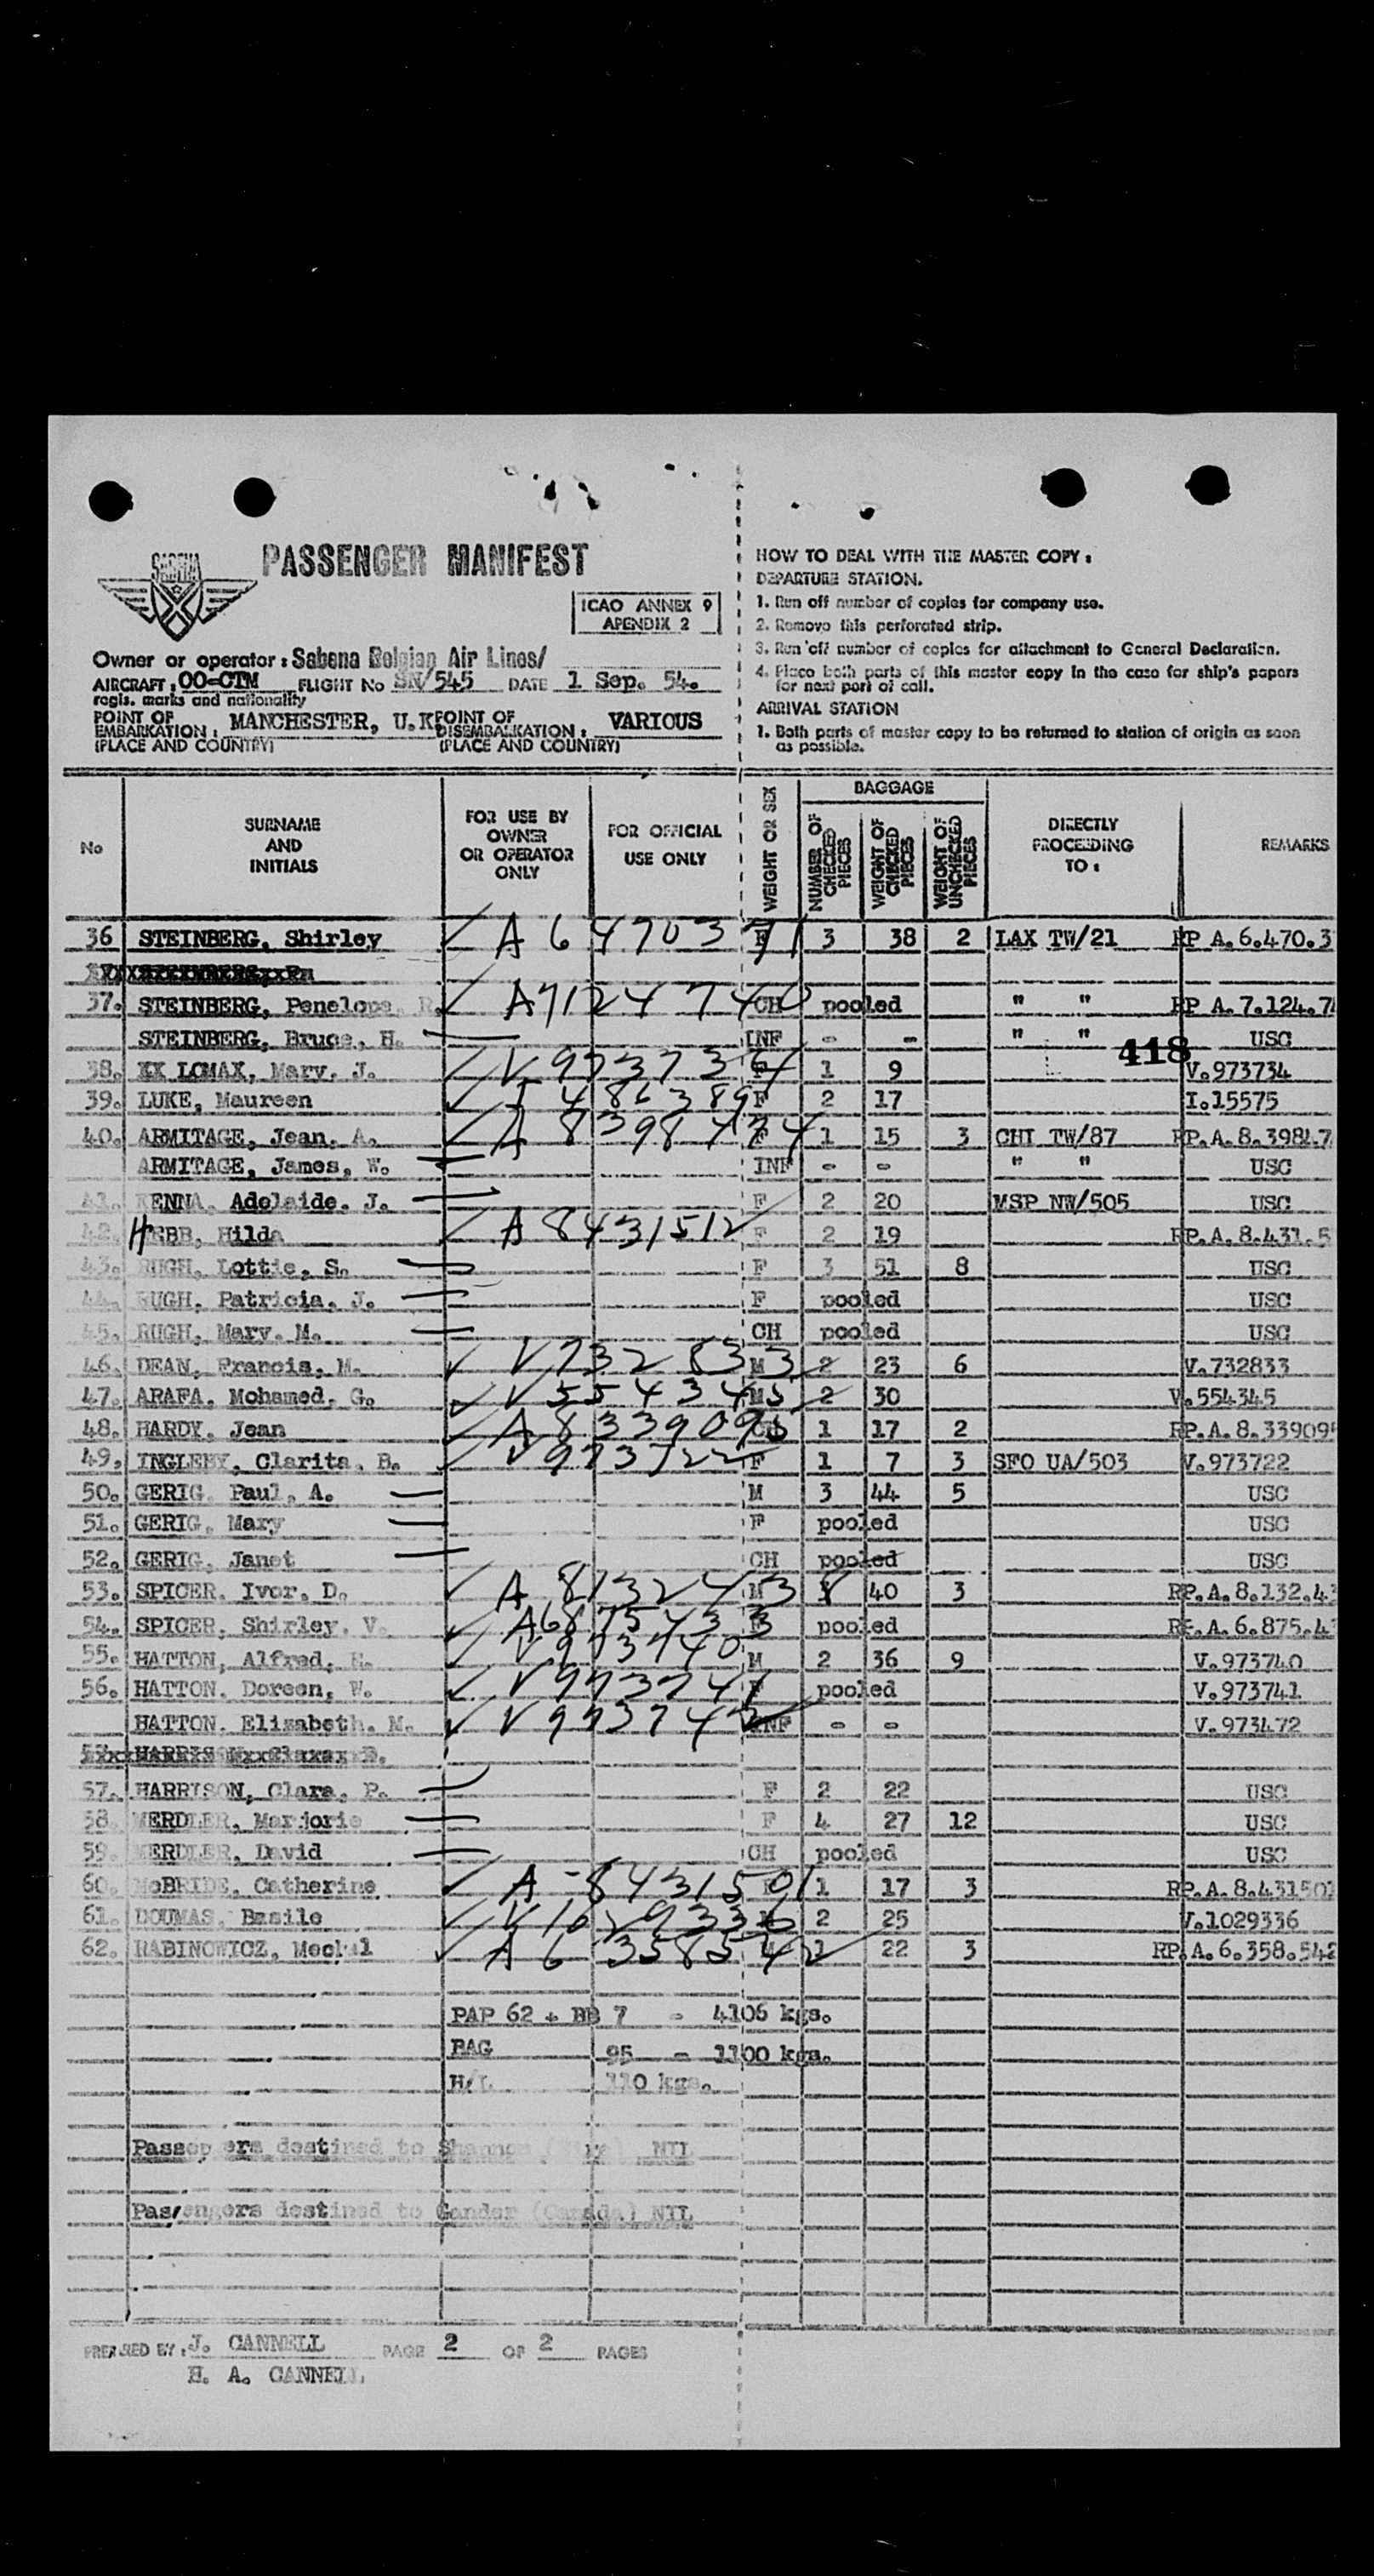 SABENA
PASSENGER MANIFEST
ICAO ANNEX 9
APENDIX 2
Owner or operator : Sabena Belgian Air Lines/
AIRCRAFT : OO-CTM FLIGHT No SN/545 DATE 1 Sep. 54.
regis. marks and nationality
POINT OF EMBARKATION : MANCHESTER, U.K. POINT OF DISEMBARKATION : VARIOUS
(PLACE AND COUNTRY) (PLACE AND COUNTRY)
HOW TO DEAL WITH THE MASTER COPY :
DEPARTURE STATION.
1. Run off number of copies for company use.
2. Remove this perforated strip.
3. Run off number of copies for attachment to General Declaration.
4. Place both parts of this master copy in the case for ship's papers
for next port of call.
ARRIVAL STATION
1. Both parts of master copy to be returned to station of origin as soon
as possible.
No SURNAME AND INITIALS FOR USE BY OWNER OR OPERATOR ONLY FOR OFFICIAL USE ONLY WEIGHT OR SEX BAGGAGE NUMBER OF CHECKED PIECES WEIGHT OF CHECKED PIECES WEIGHT OF UNCHECKED PIECES DIRECTLY PROCEEDING TO : REMARKS
36 STEINBERG, Shirley A 6470371 F 3 38 2 LAX TW/21 RP A.6.470.3
37. STEINBERG, Penelope, R. A7124740 CH pooled " " RP A.7.124.74
STEINBERG, Bruce, H. INF - - " " USC
418
38. XX LOMAX, Mary. J. V973734 F 1 9 V.973734
39. LUKE, Maureen F 2 17 I.15575
40. ARMITAGE, Jean. A. A 8398474 F 1 15 3 CHI TW/87 RP.A.8.39847
ARMITAGE, James, W. INF - - " " USC
41. KENNA, Adelaide. J. F 2 20 MSP NW/505 USC
42. HEBB, Hilda A 8431512 F 2 19 RP.A.8.431.5
43. RUGH, Lottie, S. F 3 51 8 USC
44. RUGH, Patricia. J. F pooled USC
45. RUGH, Mary. M. CH pooled USC
46. DEAN, Francis, M. V732833 M 2 23 6 V.732833
47. ARAFA. Mohamed, G. V554345 M 2 30 V.554345
48. HARDY, Jean A8339095 CH 1 17 2 RP.A.8.339095
49. INGLEBY, Clarita. B. V973722 F 1 7 3 SFO UA/503 V.973722
50. GERIG. Paul, A. M 3 44 5 USC
51. GERIG, Mary F pooled USC
52. GERIG, Janet CH pooled USC
53. SPICER. Ivor. D. A 8132438 M 40 3 RP.A.8.132.43
54. SPICER, Shirley. V. A6875433 F pooled RP.A.6.875.43
55. HATTON, Alfred. V973740 M 2 36 9 V.973740
56. HATTON. Doreen, W. V973741 F pooled V.973741
HATTON. Elizabeth. M. V973742 INF - - V.973472
57. HARRISON, Clara, P. F 2 22 USC
58. MERDLER, Marjorie F 4 27 12 USC
59. MERDLER, David CH pooled USC
60. McBRIDE, Catherine A-8431501 F 1 17 3 RP.A.8.431501
61. DOUMAS, Basile V1029336 M 2 25 V.1029336
62. RABINOWICZ, Mechal A 6358542 M 1 22 3 RP.A.6.358.542
PAP 62 + BB 7 - 4106 kgs.
BAG 95 - 1100 kgs.
H/L 110 kgs.
Passengers destined to Shannon NIL
Passengers destined to Gander (Canada) NIL
PREPARED BY : J. CANNELL PAGE 2 OF 2 PAGES
H. A. CANNELL